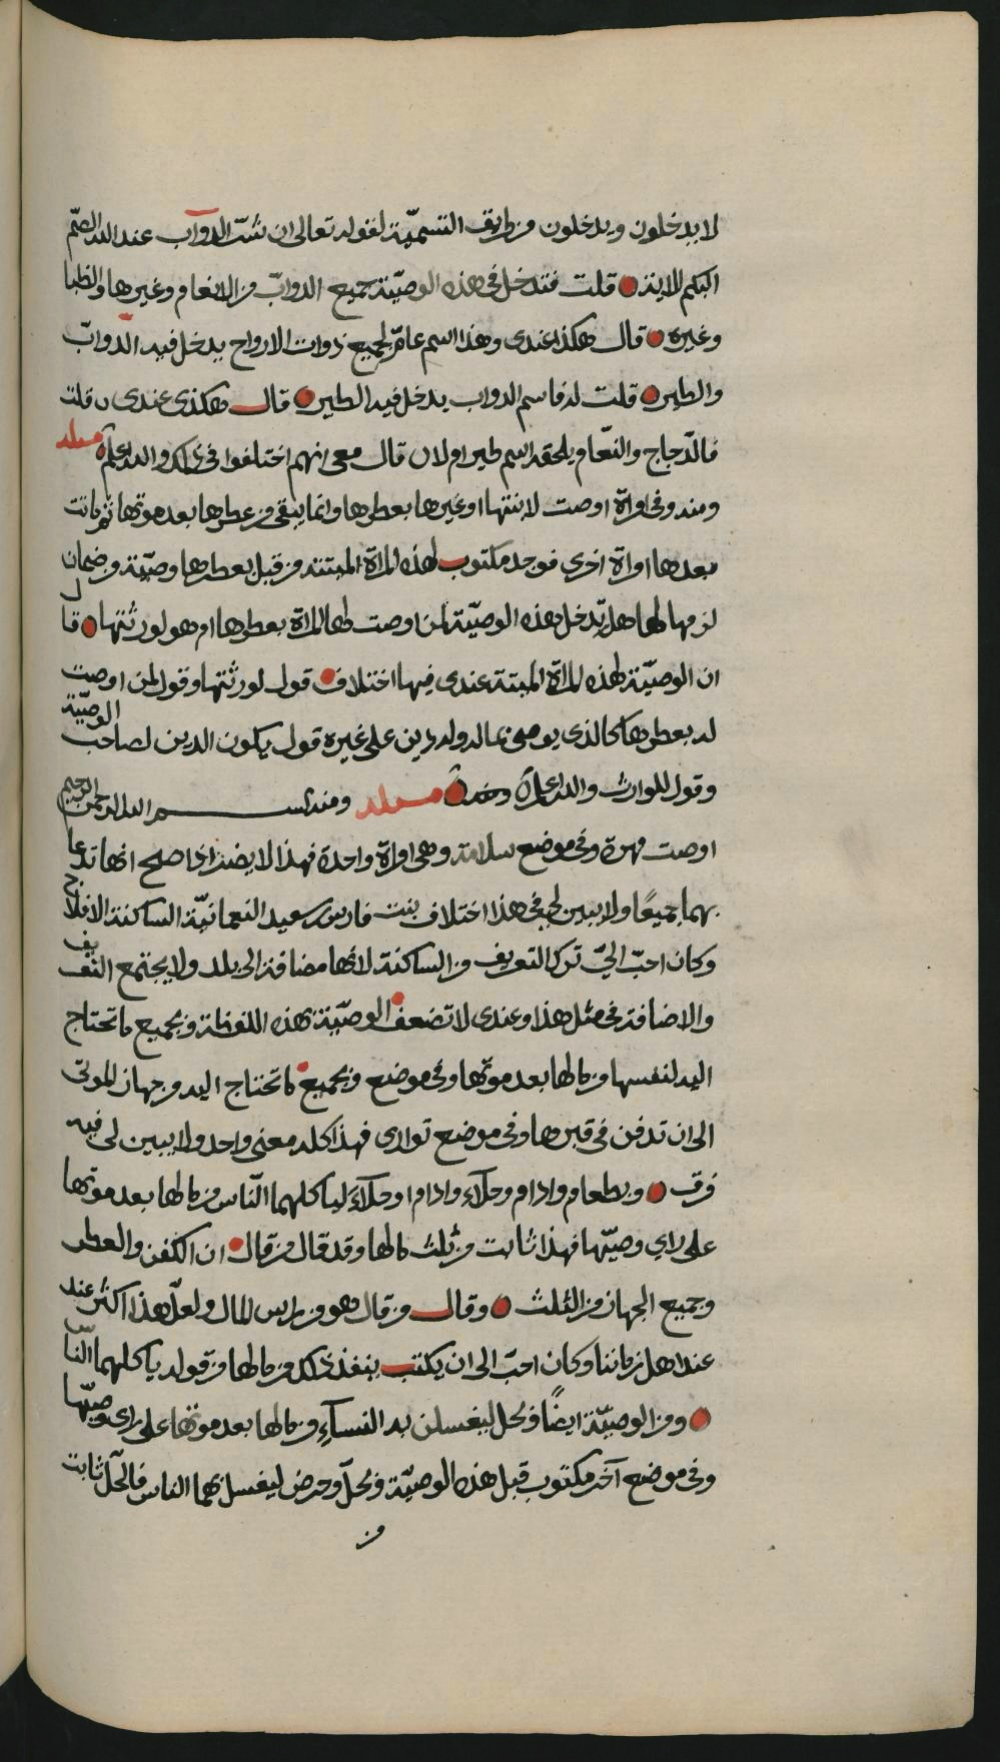 لا يدخلون ويدخلون من طريق التسمية لقوله تعالى ان شر الدوآب عند الله الصّم
البكم الاية قلت فتدخل في هذه الوصيّة جميع الدوابّ من الانعام وغيرها والظبا
وغيره قال هكذا عندي وهذا اسم عامّ لجميع ذوات الارواح يدخل فيه الدّوابّ
والطير قلت له فاسم الدواب يدخل فيه الطير قال هكذى عندي قلت
فالدّجاج والنّعام ويلحقه اسم طير ام لا قال معي انهم اختلفوا في ذلك والله اعلم مسئلة
ومنه وفي امراة اوصت لابنتها او غيرها بعطرها وانما يبقى من عطرها بعد موتها ثم ماتت
بعدها امراة اخرى فوجد مكتوب لهذه المراة الميتة من قبل بعطرها وصيّة من ضمان
لزمها لها هل تدخل هذه الوصيّة لمن اوصت لها المراة بعطرها ام هو لورثتها قال
ان الوصيّة لهذه المراة الميتة عندي فيها اختلاف قول لورثتها وقول لمن اوصت
له بعطرها كالذي يوصي بماله وله دين على غيره قول يكون الدين لصاحب الوصيّة
وقول للوارث والله اعلم مسئلة ومنه بسم الله الرحمن الرحيم
اوصت مهرة وفي موضع سلامة وهي امراة واحدة فهذا لا يضر اذا صلح انها تدعا
بهما جميعًا ولا يبين لي في هذا اختلاف بنت فارس سعيد النعمانيّة الساكنة الافلاج
وكان احبّ اليّ ترك التعريف من الساكنة لانها مضافة الى بلد ولا يجتمع التعريف
والاضافة في مثل هذا وعندي لا تضعف الوصيّة بهذه اللفظة وبجميع ما تحتاج
اليه لنفسها من مالها بعد موتها وفي موضع وبجميع ما تحتاج اليه من جهاز الموتى
الى ان تدفن في قبرها وفي موضع توارى فهذا كله معنى واحد ولا يبين لي فيه
فرق وبطعام وادام وحلآء وادام او حلآء لياكلهما النّاس من مالها بعد موتها
على راي وصيّها فهذا ثابت من ثلث مالها وقد قال من قال ان الكفن والعطر
وجميع الجهاز من الثلث وقال من قال هو من راس المال ولعلّ هذا اكثر عند
عند اهل زماننا وكان احبّ الى ان يكتب ينفذ ذلك من مالها من قوله ياكلهما النّاس
ومن الوصيّة ايضًا وبحل ليغسلن به النسآء من مالها بعد موتها على راي وصيّها
وفي موضع آخر مكتوب قبل هذه الوصيّة وبحلّ وحرض ليغسل بهما الناس فالحلّ ثابت
من